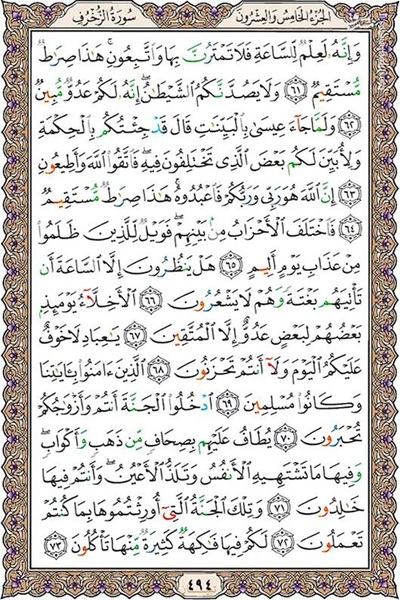 الجزء الخامس والعشرون سورة الزخرف
وَإِنَّهُ لَعِلْمٌ لِّلسَّاعَةِ فَلَا تَمْتَرُنَّ بِهَا وَاتَّبِعُونِ ۚ هَٰذَا صِرَاطٌ
مُّسْتَقِيمٌ ﴿٦١﴾ وَلَا يَصُدَّنَّكُمُ الشَّيْطَانُ ۖ إِنَّهُ لَكُمْ عَدُوٌّ مُّبِينٌ
﴿٦٢﴾ وَلَمَّا جَاءَ عِيسَىٰ بِالْبَيِّنَاتِ قَالَ قَدْ جِئْتُكُم بِالْحِكْمَةِ
وَلِأُبَيِّنَ لَكُم بَعْضَ الَّذِي تَخْتَلِفُونَ فِيهِ ۖ فَاتَّقُوا اللَّهَ وَأَطِيعُونِ
﴿٦٣﴾ إِنَّ اللَّهَ هُوَ رَبِّي وَرَبُّكُمْ فَاعْبُدُوهُ ۚ هَٰذَا صِرَاطٌ مُّسْتَقِيمٌ
﴿٦٤﴾ فَاخْتَلَفَ الْأَحْزَابُ مِن بَيْنِهِمْ ۖ فَوَيْلٌ لِّلَّذِينَ ظَلَمُوا
مِنْ عَذَابِ يَوْمٍ أَلِيمٍ ﴿٦٥﴾ هَلْ يَنظُرُونَ إِلَّا السَّاعَةَ أَن
تَأْتِيَهُم بَغْتَةً وَهُمْ لَا يَشْعُرُونَ ﴿٦٦﴾ الْأَخِلَّاءُ يَوْمَئِذٍ
بَعْضُهُمْ لِبَعْضٍ عَدُوٌّ إِلَّا الْمُتَّقِينَ ﴿٦٧﴾ يَا عِبَادِ لَا خَوْفٌ
عَلَيْكُمُ الْيَوْمَ وَلَا أَنتُمْ تَحْزَنُونَ ﴿٦٨﴾ الَّذِينَ آمَنُوا بِآيَاتِنَا
وَكَانُوا مُسْلِمِينَ ﴿٦٩﴾ ادْخُلُوا الْجَنَّةَ أَنتُمْ وَأَزْوَاجُكُمْ
تُحْبَرُونَ ﴿٧٠﴾ يُطَافُ عَلَيْهِم بِصِحَافٍ مِّن ذَهَبٍ وَأَكْوَابٍ ۖ
وَفِيهَا مَا تَشْتَهِيهِ الْأَنفُسُ وَتَلَذُّ الْأَعْيُنُ ۖ وَأَنتُمْ فِيهَا
خَالِدُونَ ﴿٧١﴾ وَتِلْكَ الْجَنَّةُ الَّتِي أُورِثْتُمُوهَا بِمَا كُنتُمْ
تَعْمَلُونَ ﴿٧٢﴾ لَكُمْ فِيهَا فَاكِهَةٌ كَثِيرَةٌ مِّنْهَا تَأْكُلُونَ ﴿٧٣﴾
٤٩٤